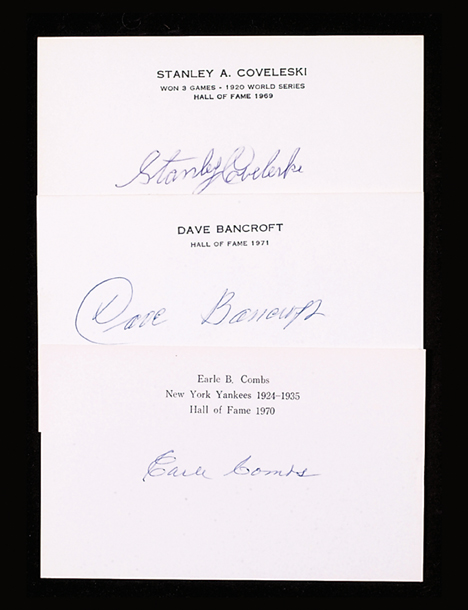 STANLEY A. COVELESKI
WON 3 GAMES - 1920 WORLD SERIES
HALL OF FAME 1969
Stanley Coveleski
DAVE BANCROFT
HALL OF FAME 1971
Dave Bancroft
Earle B. Combs
New York Yankees 1924-1935
Hall of Fame 1970
Earle Combs